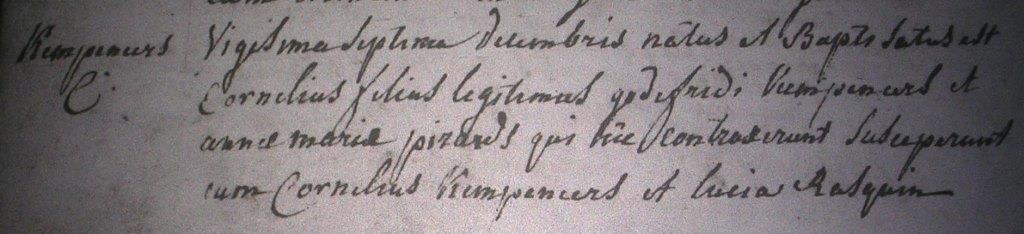 Kempeneers Vigesima septima decembris natus et Baptisatus est
C. Cornelius filius legitimus godefridi kempeneers et
annæ mariæ pirards qui hic contraxerunt susceperunt
eum Cornelius Kempeneers et lucia Rasquin